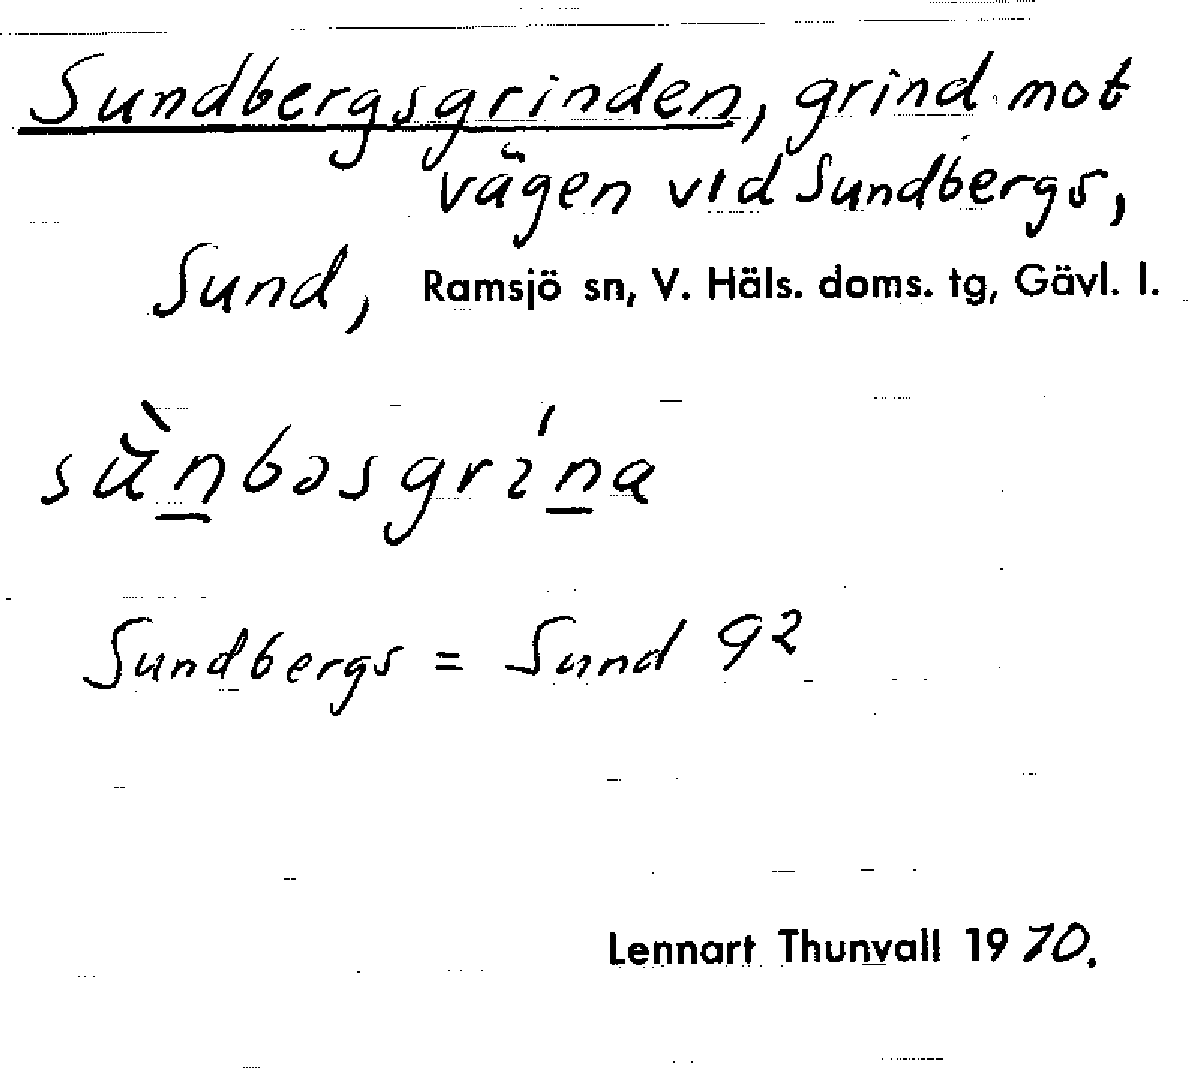 Sundbergsgrinden, grind mot
vägen vid Sundbergs,
Sund, Ramsjö sn, V. Häls. doms. tg, Gävl. l.
sùn̲bəsgrín̲a
Sundbergs = Sund 9²
Lennart Thunvall 1970.